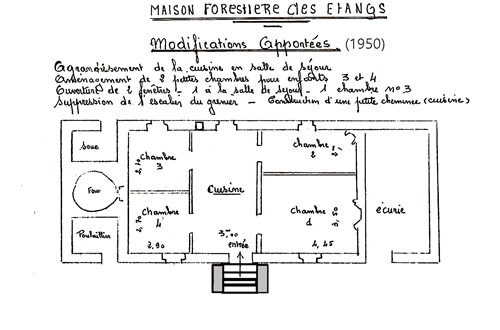 MAISON FORESTIERE des ETANGS
Modifications Apportées (1950)
Agrandissement de la cuisine en salle de séjour
Aménagement de 2 petites chambres pour enfants 3 et 4
Ouverture de 2 fenêtres - 1 à la salle de séjour - 1 chambre n°3
Suppression de l'escalier du grenier - Construction d'une petite cheminée (cuisine)
Soue
Four
Poulailler
Chambre
3
2,70
Chambre
4
2,70
2,90
Cuisine
3,40
entrée
Chambre
2
Chambre
1
4,45
écurie